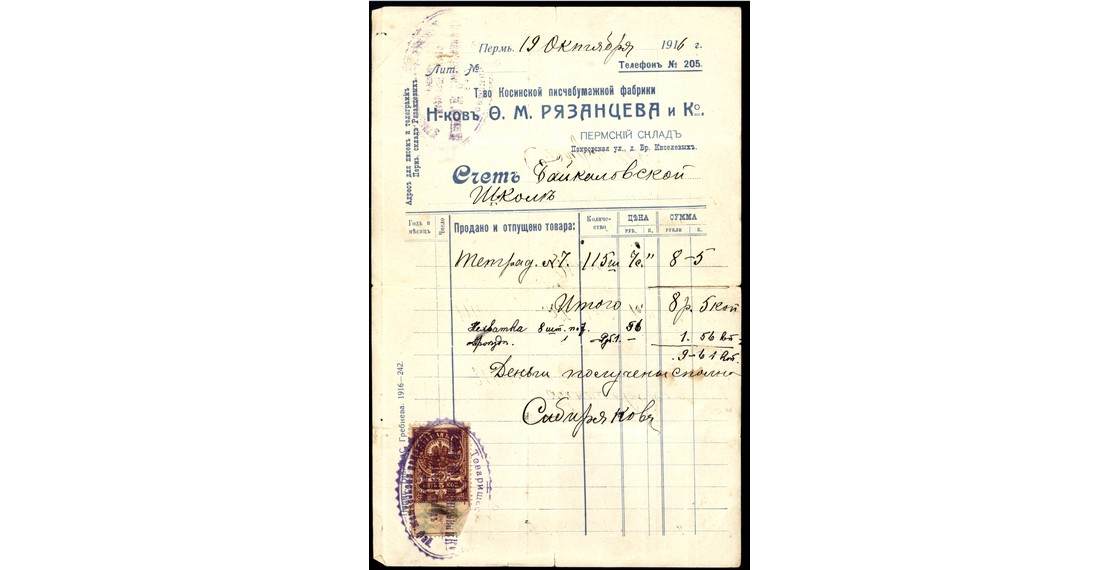 Пермь. 19 Октября 1916 г.
Лит. №
Телефонъ № 205.
Т-во Косинской писчебумажной фабрики
Н-ковъ Ѳ. М. РЯЗАНЦЕВА и Ко.
ПЕРМСКІЙ СКЛАДЪ
Покровская ул., д. Бр. Киселевыхъ.
Адресъ для писемъ и телеграммъ
Пермь. складъ Рязанцевыхъ
Счетъ Байкаловской
Школѣ
Годъ и мѣсяцъ Число Продано и отпущено товара: Количество ЦѢНА СУММА
РУБ. К. РУБЛИ К.
Тетрад. №7. 115 шт 7к. " 8-5
Итого 8 р. 5 коп
8 шт. по 7. 56
1. 56 коп.
9-61 коп.
Деньги получены сполна
Сибиряковъ
Гребнева. 1916—242.
Товарищес